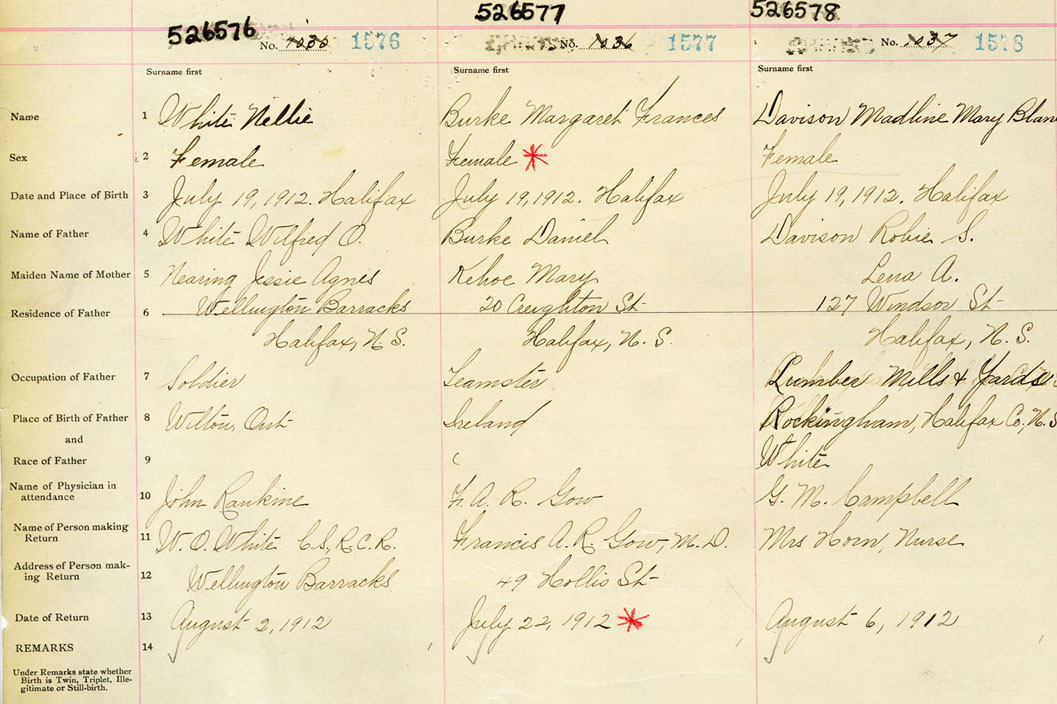 526576 526577 526578
No. 1035 1576 No. 1036 1577 No. 1037 1578
Surname first Surname first Surname first
Name 1 White Nellie Burke Margaret Frances Davison Madline Mary Blan
Sex 2 Female Female * Female
Date and Place of Birth 3 July 19, 1912. Halifax July 19, 1912. Halifax July 19, 1912. Halifax
Name of Father 4 White Wilfred O. Burke Daniel Davison Robie S.
Maiden Name of Mother 5 Nearing Jessie Agnes Kehoe Mary Lena A.
Residence of Father 6 Wellington Barracks 20 Creighton St 127 Windsor St
Halifax, N. S. Halifax, N. S. Halifax, N. S.
Occupation of Father 7 Soldier Teamster Lumber Mills & Yards
Place of Birth of Father 8 Wilton, Ont Ireland Rockingham, Halifax Co, N.S
and
Race of Father 9 White
Name of Physician in
attendance 10 John Rankine F. A. R. Gow G. M. Campbell
Name of Person making
Return 11 W. O. White C.S., R.C.R. Francis A. R. Gow, M. D. Mrs Horn, Nurse
Address of Person mak-
ing Return 12 Wellington Barracks 49 Hollis St
Date of Return 13 August 2, 1912 July 22, 1912 * August 6, 1912
REMARKS 14
Under Remarks state whether
Birth is Twin, Triplet, Ille-
gitimate or Still-birth.